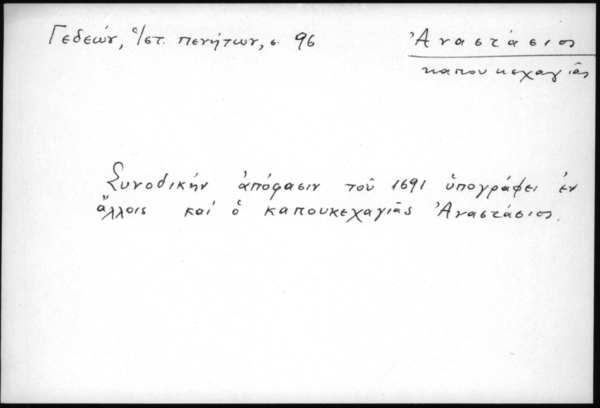 Γεδεών, Ἱστ. πενήτων, σ. 96
Ἀναστάσιος
καπουκεχαγιᾶς
Συνοδικήν ἀπόφασιν τοῦ 1691 ὑπογράφει ἐν
ἄλλοις καί ὁ καπουκεχαγιᾶς Ἀναστάσιος.